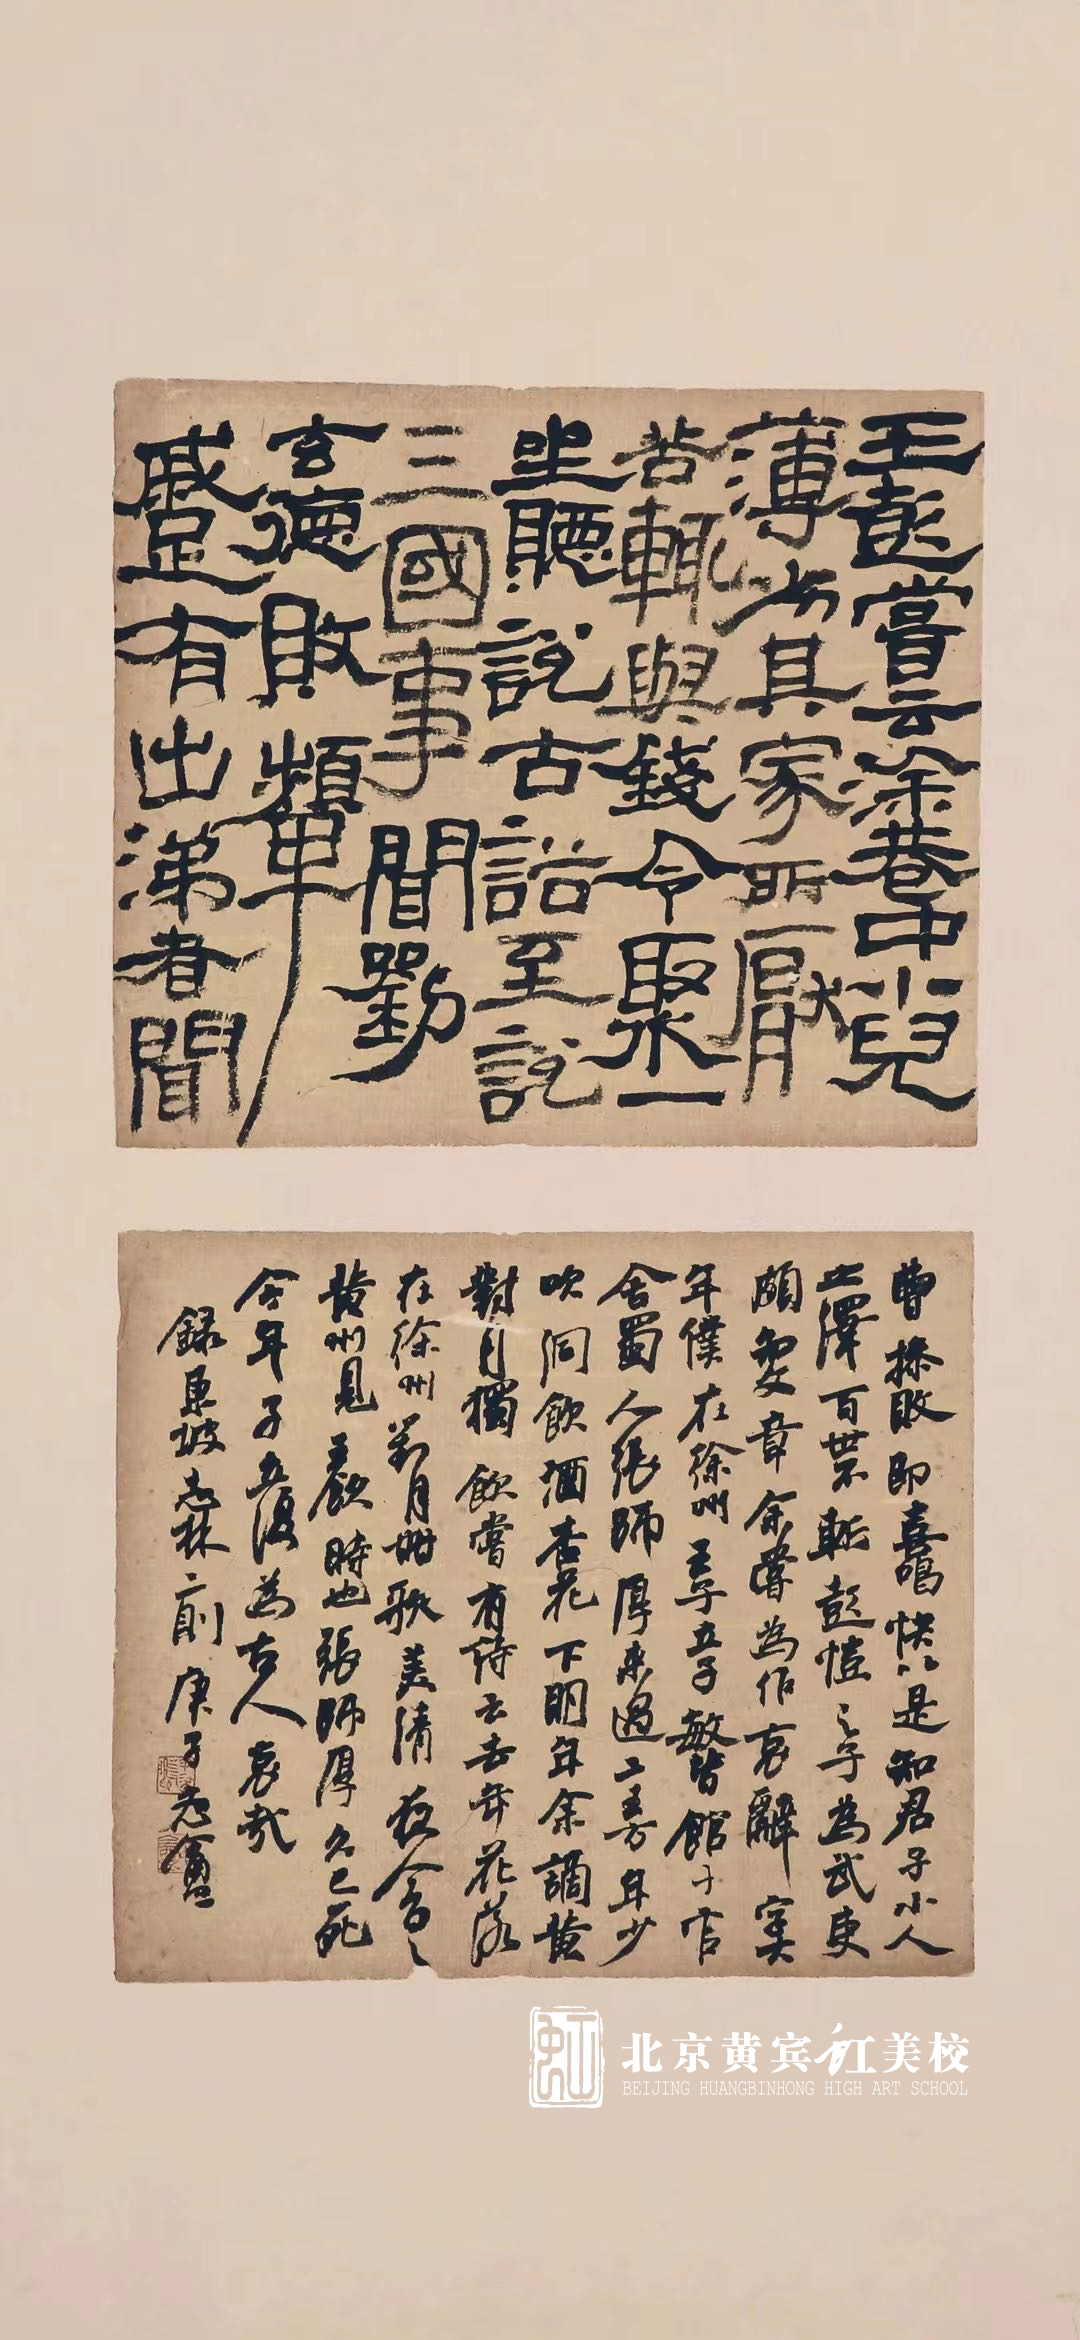 王彭嘗云塗巷中小兒
薄劣其家所厭
苦輒與錢令聚
坐聽說古話至說
三國事聞劉
玄德敗頻
蹙有出涕者聞
曹操敗即喜唱快以是知君子小人
之澤百世不斬彭愷之子為武吏
頗知文章余嘗為作哀辭
年僕在徐州王子立子敏皆館于官
舍蜀人張師厚來過二王方年少
吹洞飲酒杏花下明年余謫黃
對月獨飲嘗有詩云去年花落
在徐州對月酣歌美清夜今日
黃州見花發時也張師厚久已死
今年子立復為古人哀哉
錄東坡志林二則庚子
北京黄宾虹美校
BEIJING HUANGBINHONG HIGH ART SCHOOL